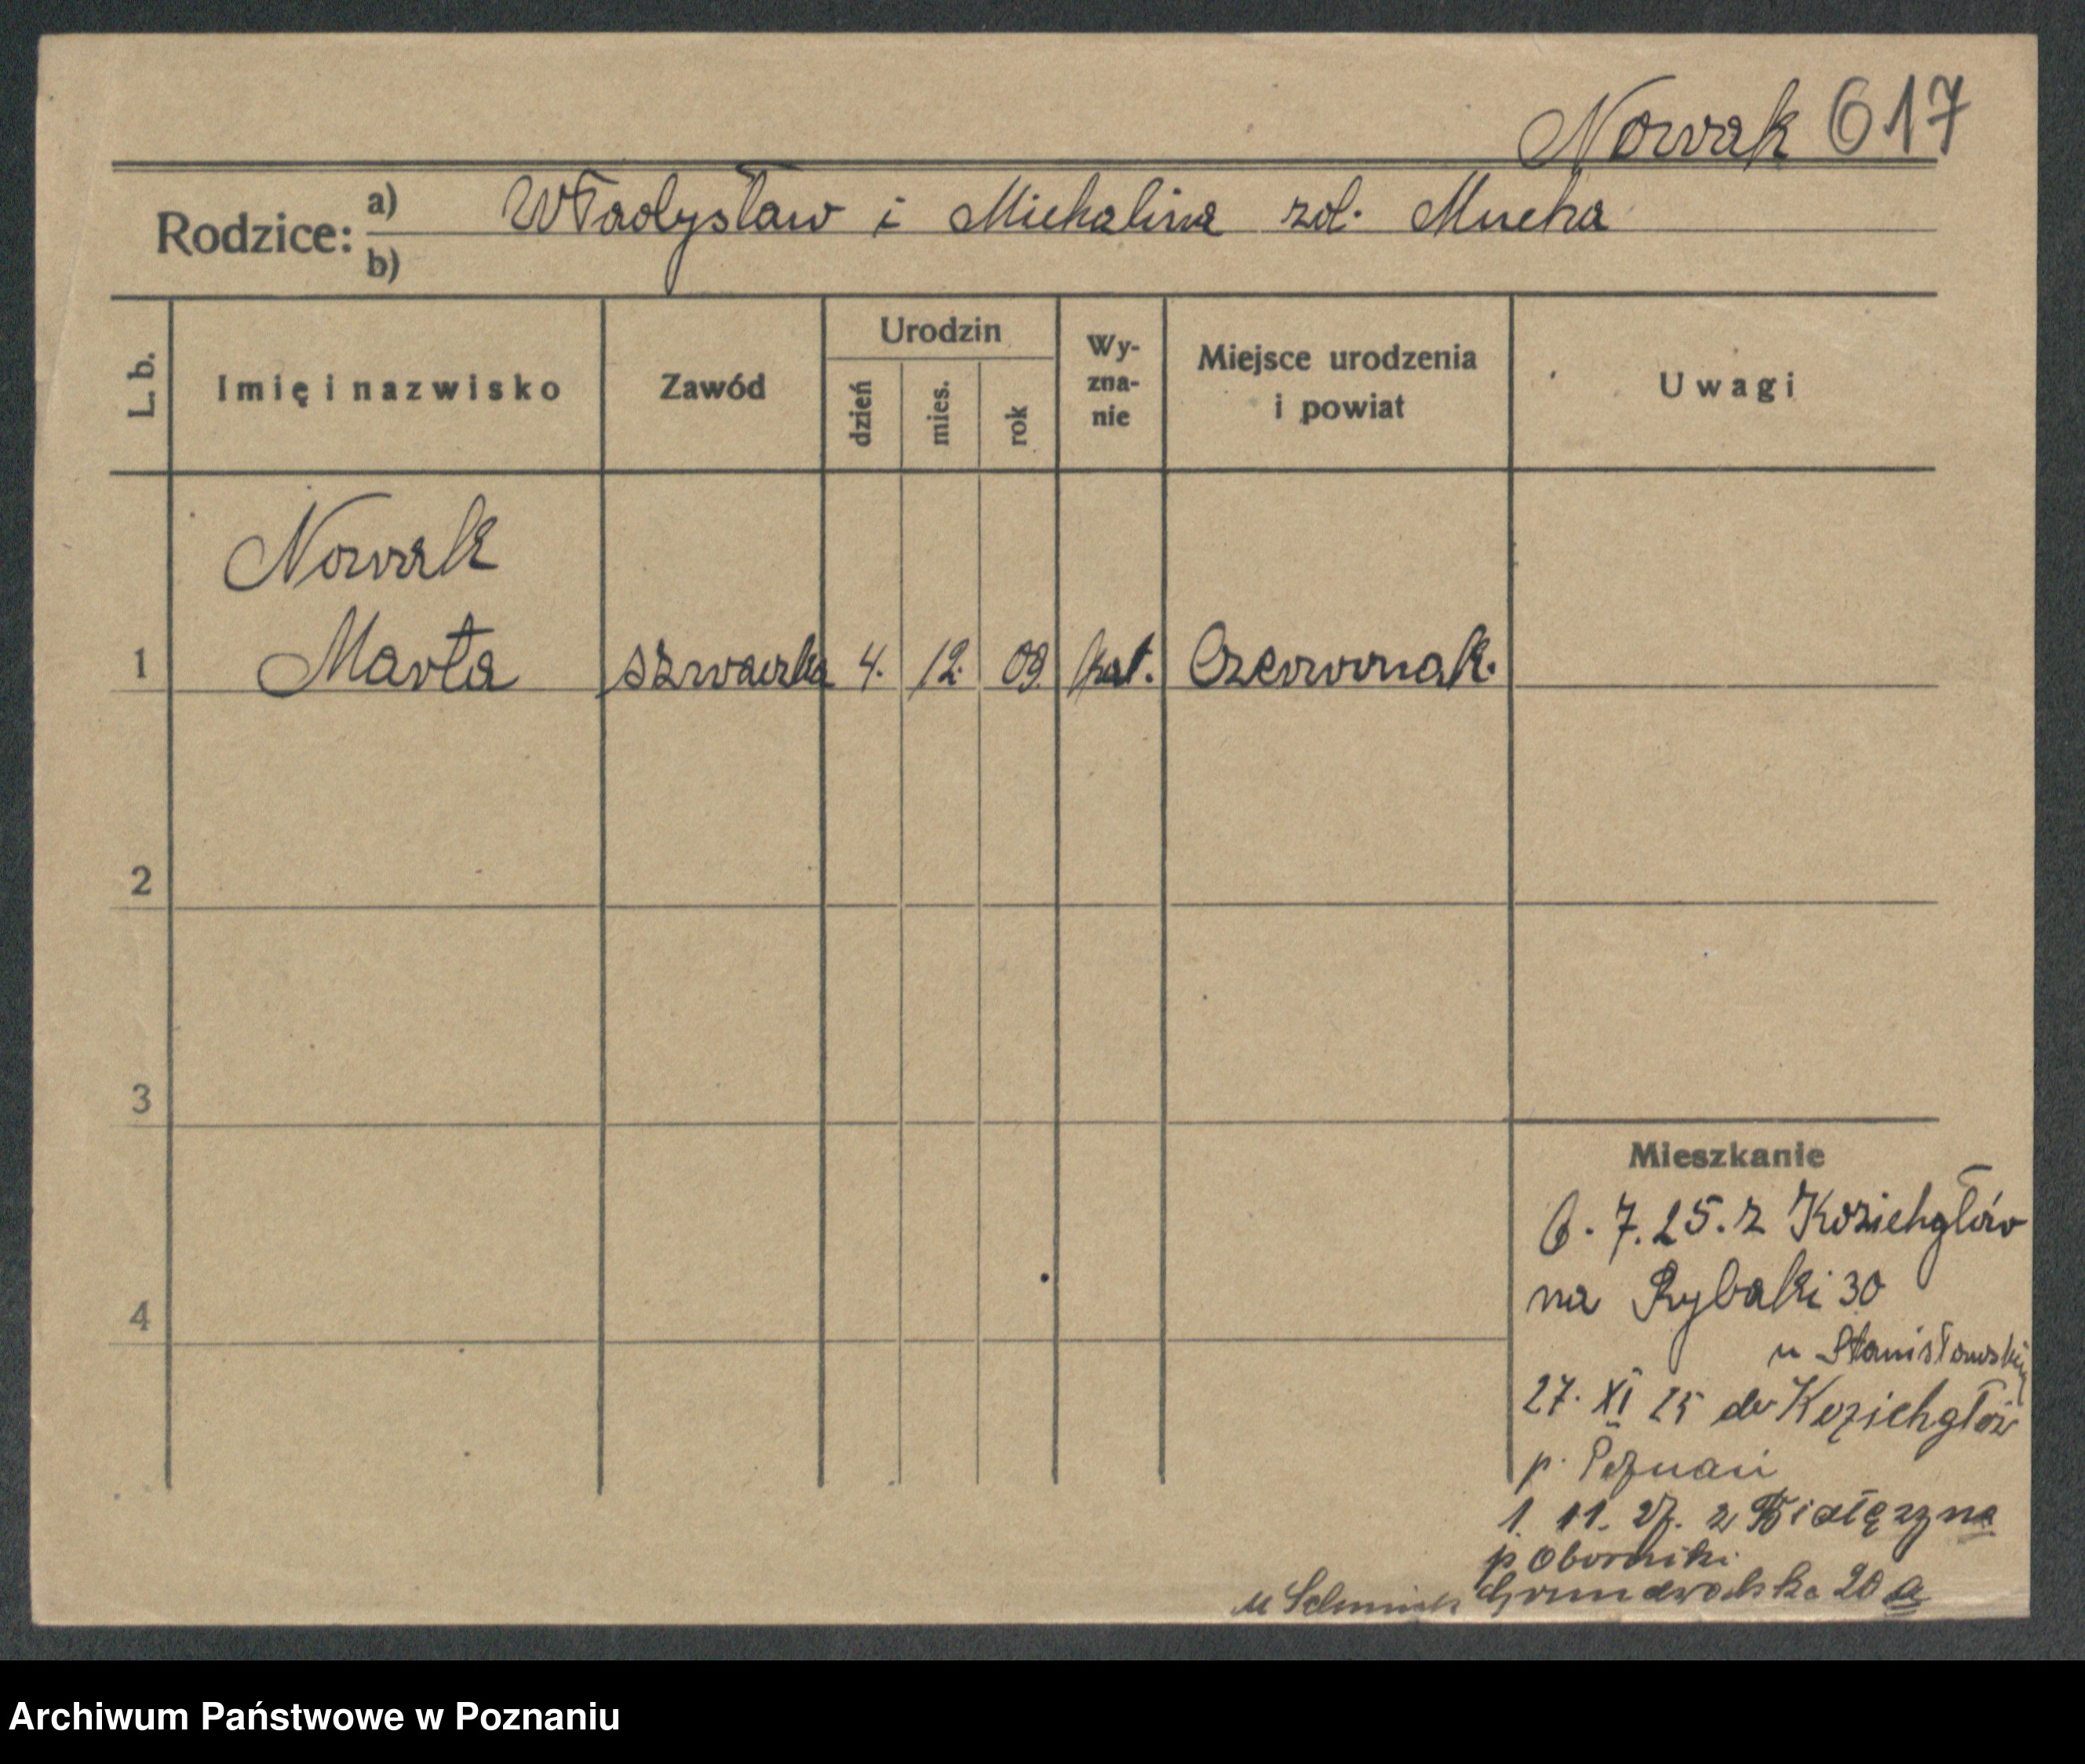 Nowak 617
Rodzice: a) Władysław i Michalina zd. Mucha
b)
L. b. Imię i nazwisko Zawód Urodzin dzień mies. rok Wyznanie Miejsce urodzenia i powiat Uwagi
Nowak
1 Marta szwaczka 4. 12. 09. kat. Czerwonak.
2
3
Mieszkanie
6. 7. 25. z Koziehgłów
na Rybaki 30
4
u Stanisławskiej
27. XI 25 do Koziehgłów
p. Poznań
1. 11. 27. z Białężyna
p Oborniki
u Grunwaldzka 20 a
Archiwum Państwowe w Poznaniu